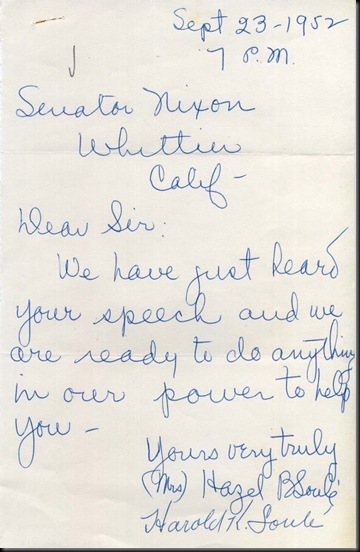 Sept 23-1952
7 P.M.
Senator Nixon
Whittier
Calif-
Dear Sir:
We have just heard
your speech and we
are ready to do anything
in our power to help
you-
Yours very truly
(Mrs) Hazel B Soulé
Harold K. Soulé